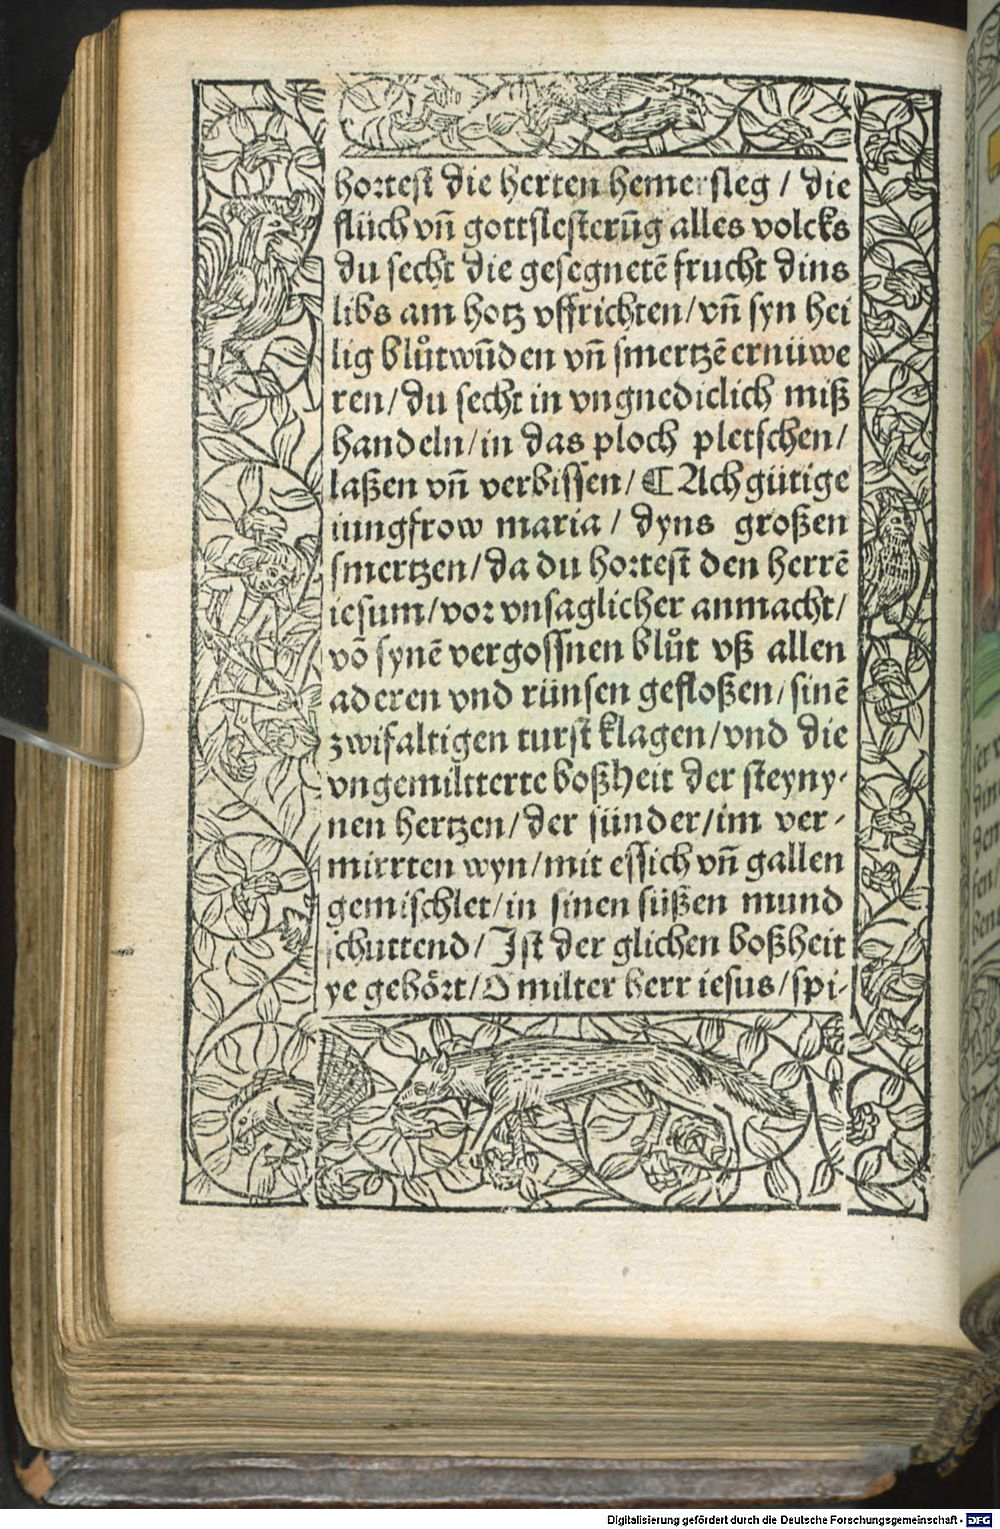 hortest die herten hemersleg / die
flüch vñ gottslesterũg alles volcks
du secht die gesegnetẽ frucht dins
libs am hotz vffrichten/vñ syn hei
lig blůtwũden vñ smertzẽ ernüwe
ren/du secht in vngnediclich miß
handeln/in das ploch pletschen/
laßen vñ verbissen/ ¶ Ach gütige
iungfrow maria / dyns großen
smertzen/da du hortest den herrẽ
iesum/vor vnsaglicher anmacht/
võ synẽ vergossnen blůt vß allen
aderen vnd rünsen gefloßen/sinẽ
zwifaltigen turst klagen/vnd die
vngemiltterte boßheit der steyny-
nen hertzen/der sünder/im ver-
mirrten wyn/mit essich vñ gallen
gemischlet/in sinen süßen mund
schuttend/Ist der glichen boßheit
ye gehört/O milter herr iesus/spi-
Digitalisierung gefördert durch die Deutsche Forschungsgemeinschaft - DFG